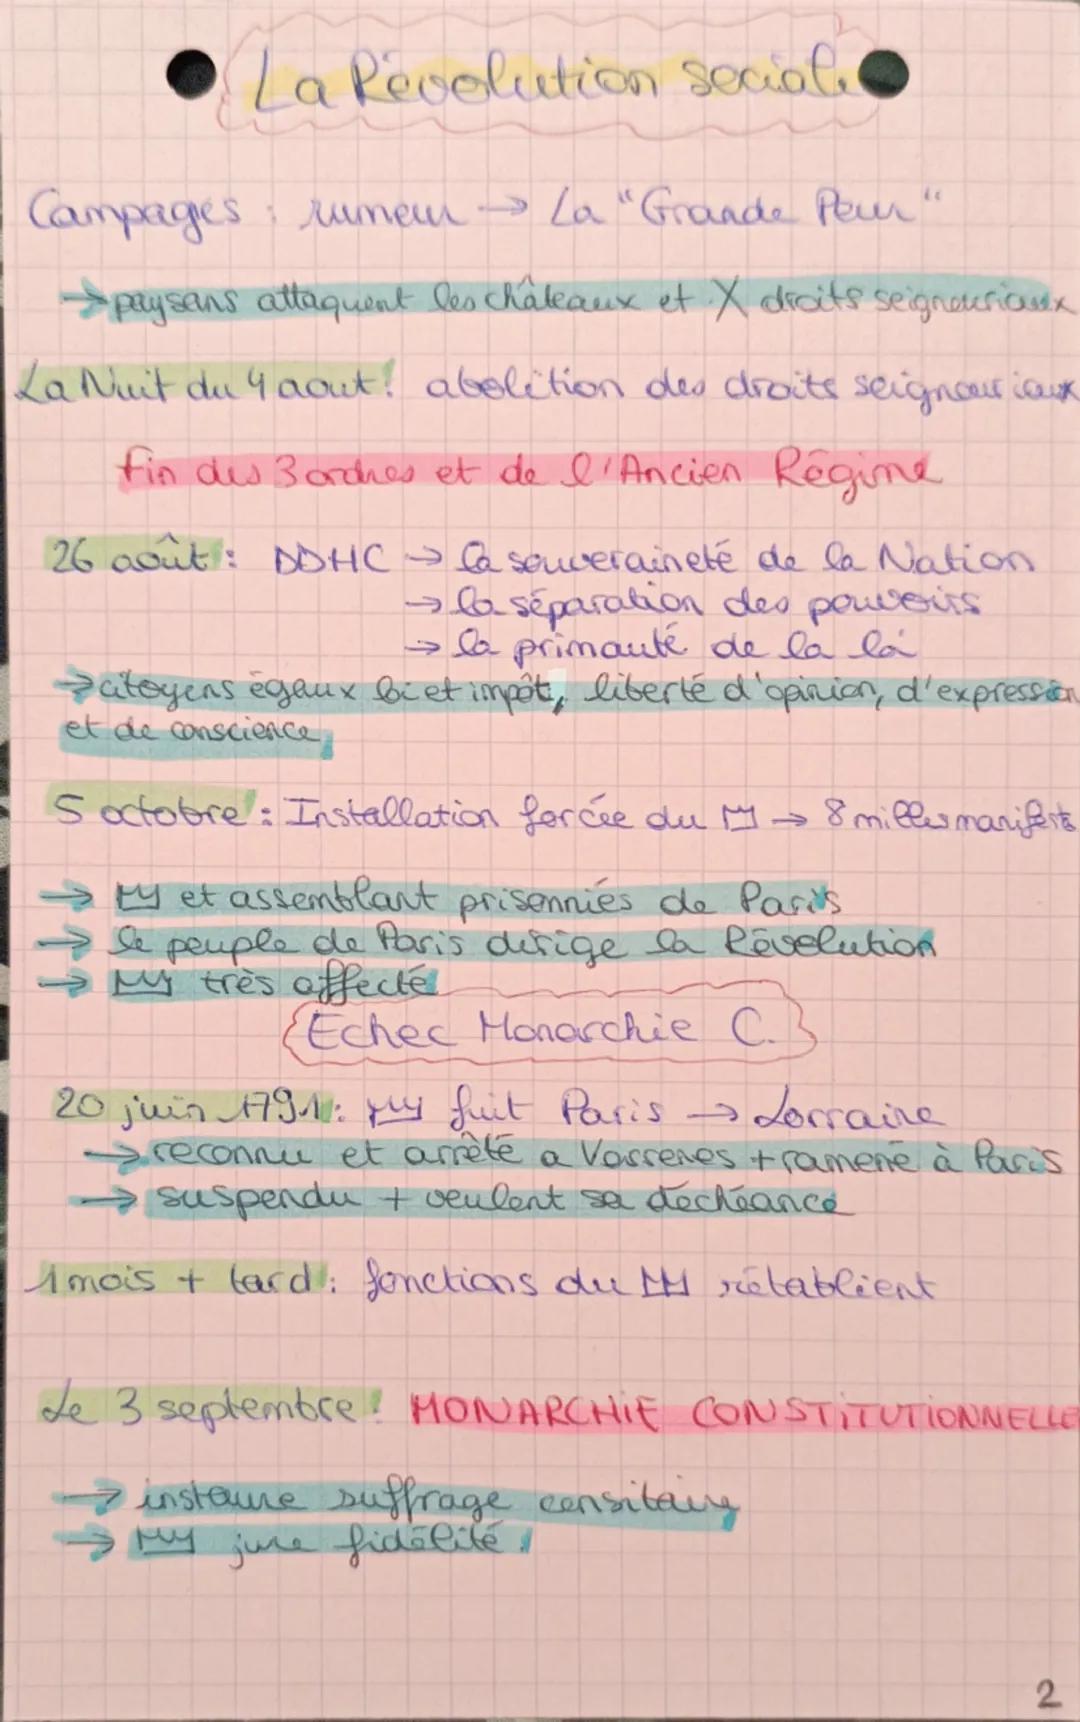 La Révolution sociale
Campagnes : rumeur → La "Grande Peur"
→ paysans attaquent les châteaux et X droits seigneuriaux
La Nuit du 4 aout : abolition des droits seigneuriaux
fin des 3 ordres et de l'Ancien Régime
26 août : DDHC → la souveraineté de la Nation
→ la séparation des pouvoirs
→ la primauté de la loi
→ citoyens égaux loi et impôt, liberté d'opinion, d'expression
et de conscience,
5 octobre : Installation forcée du → 8 milles manifests
→ et assemblant prisonniés de Paris
→ le peuple de Paris dirige la Révolution
→ très affecté
Echec Monarchie C.
20 juin 1791 : fuit Paris → Lorraine
→ reconnu et arrêté a Varrenes + ramené à Paris
→ suspendu + veulent sa déchéance
1 mois + tard : fonctions du rétablient
Le 3 septembre : MONARCHiE CONSTiTUTiONNELLE
→ instaure suffrage censitaire
→ jure fidélité.
2